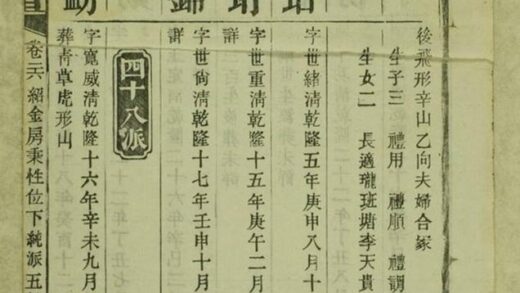 後飛形辛山乙向夫婦合冢
生子三 禮用 禮順 禮
生女二 長適瓏班塘李天貴
字世緒清乾隆五年庚申八月十
字世重清乾隆十五年庚午二月
詳
字世尙清乾隆十七年壬申十月
詳
四十八派
字寬威清乾隆十六年辛未九月
葬青草虎形山
卷六 紹金房秉性位下純派五